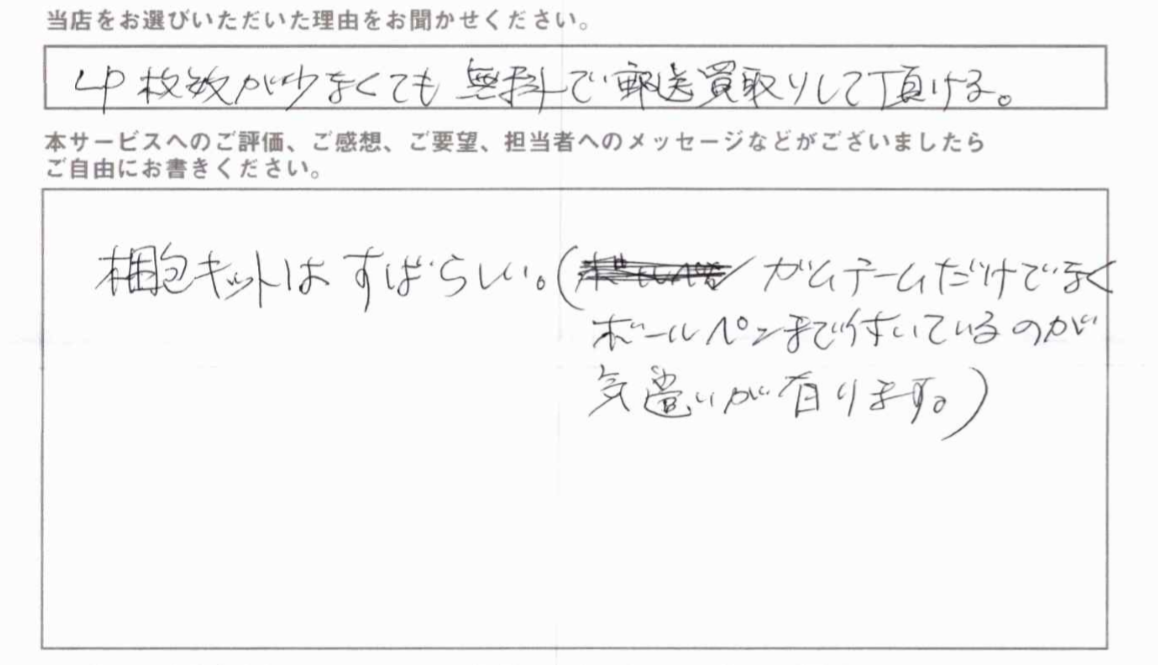 当店をお選びいただいた理由をお聞かせください。
LP枚数が少なくても無料で郵送買取りして頂ける。
本サービスへのご評価、ご感想、ご要望、担当者へのメッセージなどがございましたら
ご自由にお書きください。
梱包キットはすばらしい。(ガムテームだけでなく
ボールペンまで付いているのが
気遣いが有ります。)